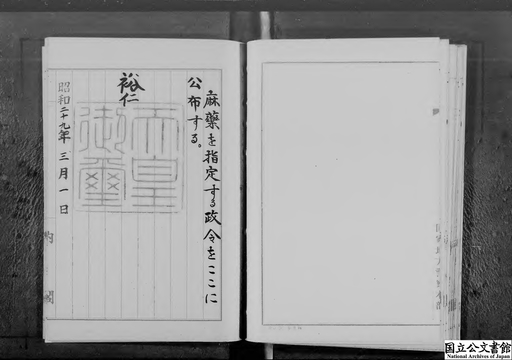 麻薬を指定する政令をここに
公布する。
裕仁
天皇御璽
昭和二十九年三月一日
内閣
国立公文書館
National Archives of Japan